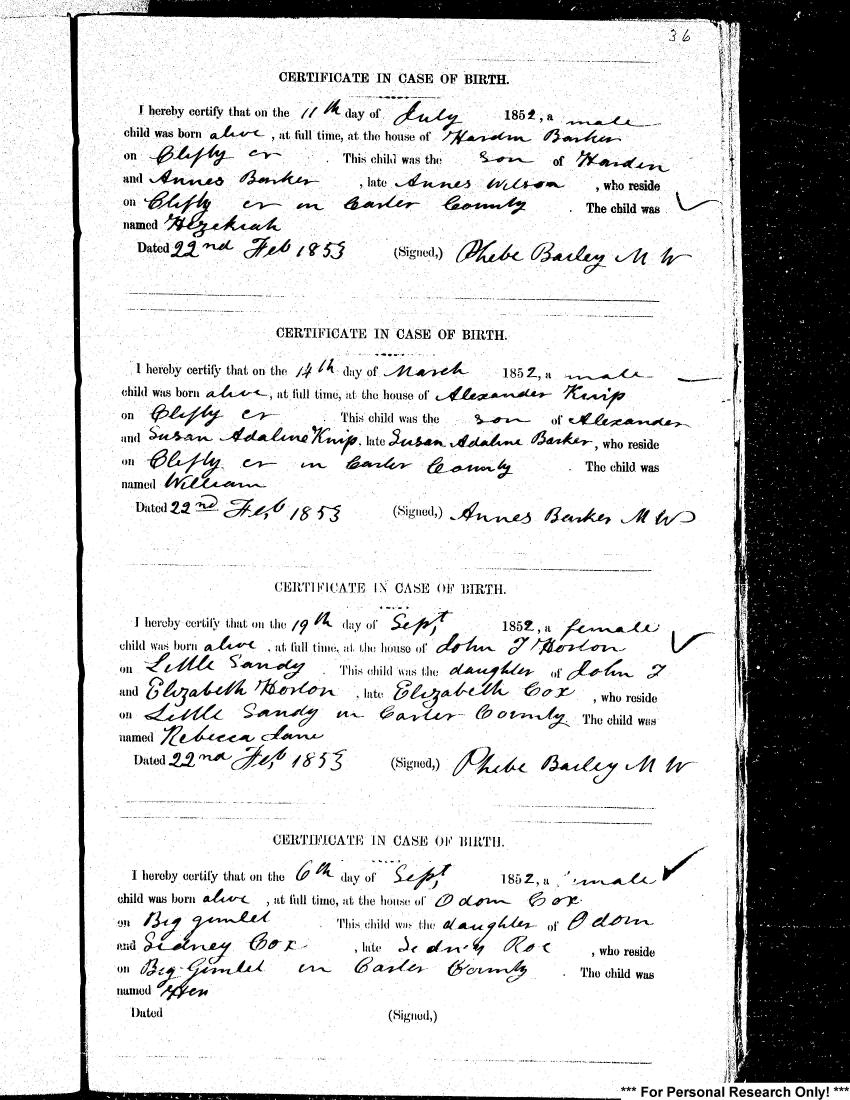 36
CERTIFICATE IN CASE OF BIRTH.
I hereby certify that on the 11th day of July 1852, a male
child was born alive, at full time, at the house of Hardin Barker
on Clifty cr. This child was the son of Harden
and Annes Barker, late Annes Wilson, who reside
on Clifty cr in Carter County. The child was
named Hezekiah
Dated 22nd Feb 1853 (Signed,) Phebe Bailey M W
CERTIFICATE IN CASE OF BIRTH.
I hereby certify that on the 14th day of March 1852, a male
child was born alive, at full time, at the house of Alexander Knip
on Clifty cr. This child was the son of Alexander
and Susan Adaline Knip, late Susan Adaline Barker, who reside
on Clifty cr in Carter County. The child was
named William
Dated 22nd Feb 1853 (Signed,) Annes Barker M W
CERTIFICATE IN CASE OF BIRTH.
I hereby certify that on the 19th day of Sept, 1852, a female
child was born alive, at full time, at the house of John T Horton
on Little Sandy. This child was the daughter of John T
and Elizabeth Horton, late Elizabeth Cox, who reside
on Little Sandy in Carter County. The child was
named Rebecca Jane
Dated 22nd Feb 1853 (Signed,) Phebe Bailey M W
CERTIFICATE IN CASE OF BIRTH.
I hereby certify that on the 6th day of Sept, 1852, a female
child was born alive, at full time, at the house of Odom Cox
on Big gimlet. This child was the daughter of Odom
and Sidney Cox, late Sidney Roe, who reside
on Big Gimlet in Carter County. The child was
named
Dated (Signed,)
*** For Personal Research Only! ***